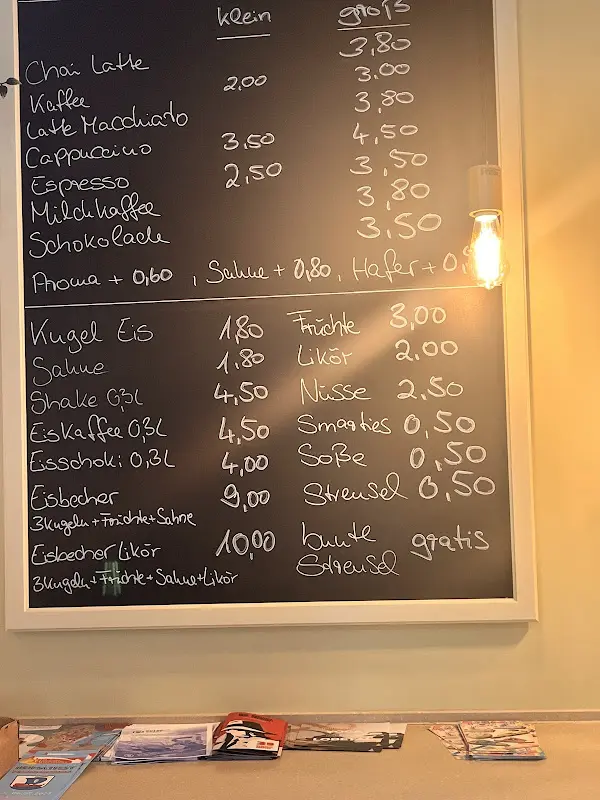 klein groß
Chai Latte 3,80
Kaffee 2,00 3.00
Latte Macchiato 3,80
Cappuccino 3,50 4,50
Espresso 2,50 3,50
Milchkaffee 3,80
Schokolade 3,50
Aroma + 0,60 , Sahne + 0,80 , Hafer +
Kugel Eis 1,80 Früchte 3,00
Sahne 1.80 Likör 2.00
Shake 0,3L 4,50 Nüsse 2,50
Eiskaffee 0,3L 4,50 Smarties 0,50
Eisschoki 0,3L 4,00 Soße 0,50
Eisbecher 9,00 Streusel 0,50
3Kugeln+Früchte+Sahne
Eisbecher Likör 10,00 bunte Streusel gratis
3Kugeln+Früchte+Sahne+Likör